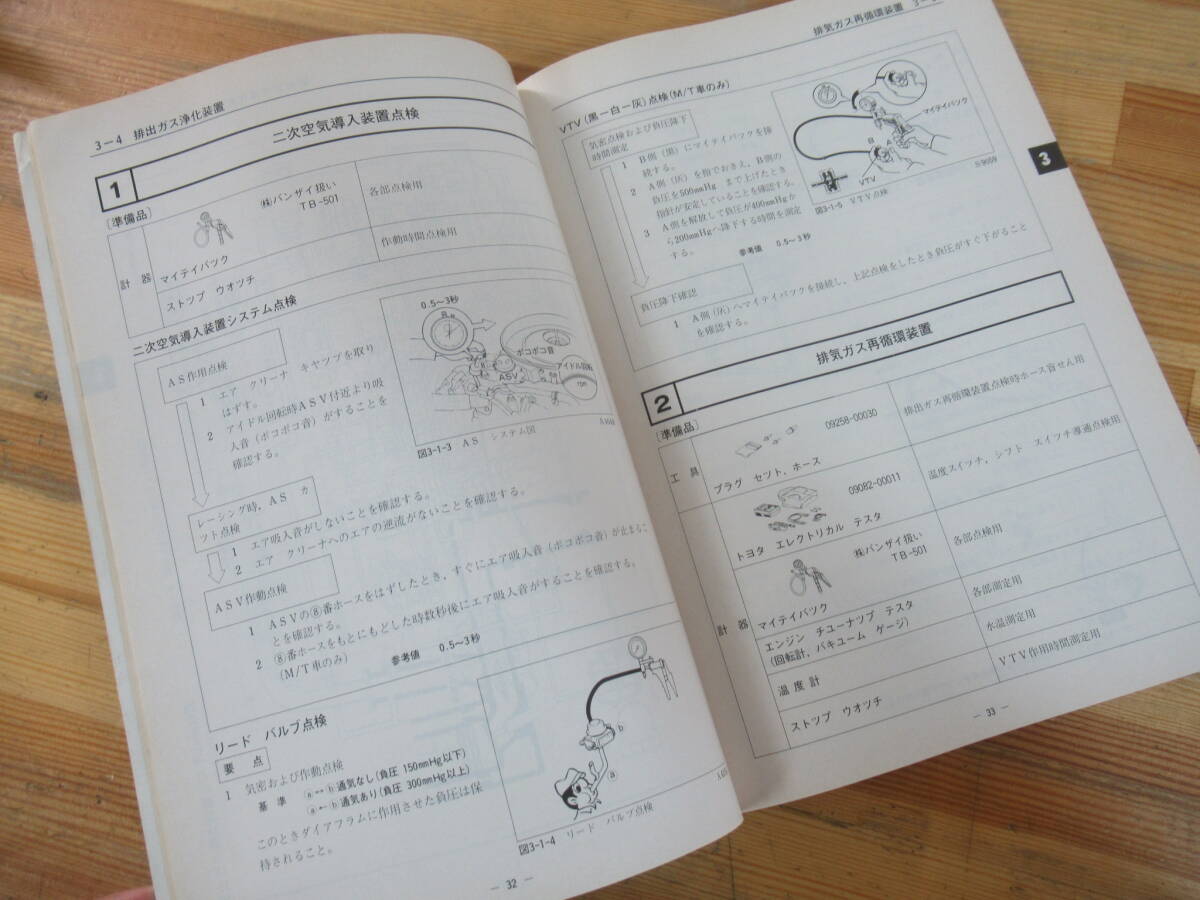 3－4 排出ガス浄化装置
1
二次空気導入装置点検
〔準備品〕
計器
マイテイバツク
㈱バンザイ扱い
TB−501
各部点検用
ストツプ ウオツチ
作動時間点検用
二次空気導入装置システム点検
AS作用点検
1 エア クリーナ キヤツプを取り
はずす。
2 アイドル回転時ASV付近より吸
入音（ポコポコ音）がすることを
確認する。
0.5〜3秒
ポコポコ音
ASV
アイドル回転
図3-1-3 AS システム図
レーシング時，AS カ
ツト点検
1 エア吸入音がしないことを確認する。
2 エア クリーナへのエアの逆流がないことを確認する。
ASV作動点検
1 ASVの⑧番ホースをはずしたとき，すぐにエア吸入音（ポコポコ音）が止まるこ
とを確認する。
2 ⑧番ホースをもとにもどした時数秒後にエア吸入音がすることを確認する。
（M/T車のみ） 参考値 0.5〜3秒
リード バルブ点検
要 点
1 気密および作動点検
基 準 ⓐ↔ⓑ通気なし（負圧 150mmHg以下）
ⓐ←ⓑ通気あり（負圧 300mmHg以上）
このときダイアフラムに作用させた負圧は保
持されること。
b
ⓐ
図3-1-4 リード バルブ点検
— 32 —
排気ガス再循環装置
VTV（黒－白－灰）点検（M/T車のみ）
気密点検および負圧降下
時間測定
1 B側（黒）にマイテイパツクを接
続する。
2 A側（灰）を指でおさえ，B側の
負圧を500mmHg まで上げたとき
指針が安定していることを確認する。
3 A側を解放して負圧が400mmHgか
ら200mmHgへ降下する時間を測定
する。
参考値 0.5〜3秒
マイテイパツク
B
A
VTV
S9059
図3-1-5 VTV点検
3
負圧降下確認
1 A側（灰）へマイテイパツクを接続し，上記点検をしたとき負圧がすぐ下がること
を確認する。
2
排気ガス再循環装置
〔準備品〕
工具
プラグ セツト，ホース
09258-00030
排出ガス再循環装置点検時ホース盲せん用
計器
トヨタ エレクトリカル テスタ
09082-00011
温度スイツチ，シフト スイツチ導通点検用
マイテイパツク
㈱バンザイ扱い
TB−501
各部点検用
エンジン チユーナツプ テスタ
（回転計，バキユーム ゲージ）
各部測定用
温度計
水温測定用
ストツプ ウオツチ
VTV作用時間測定用
— 33 —